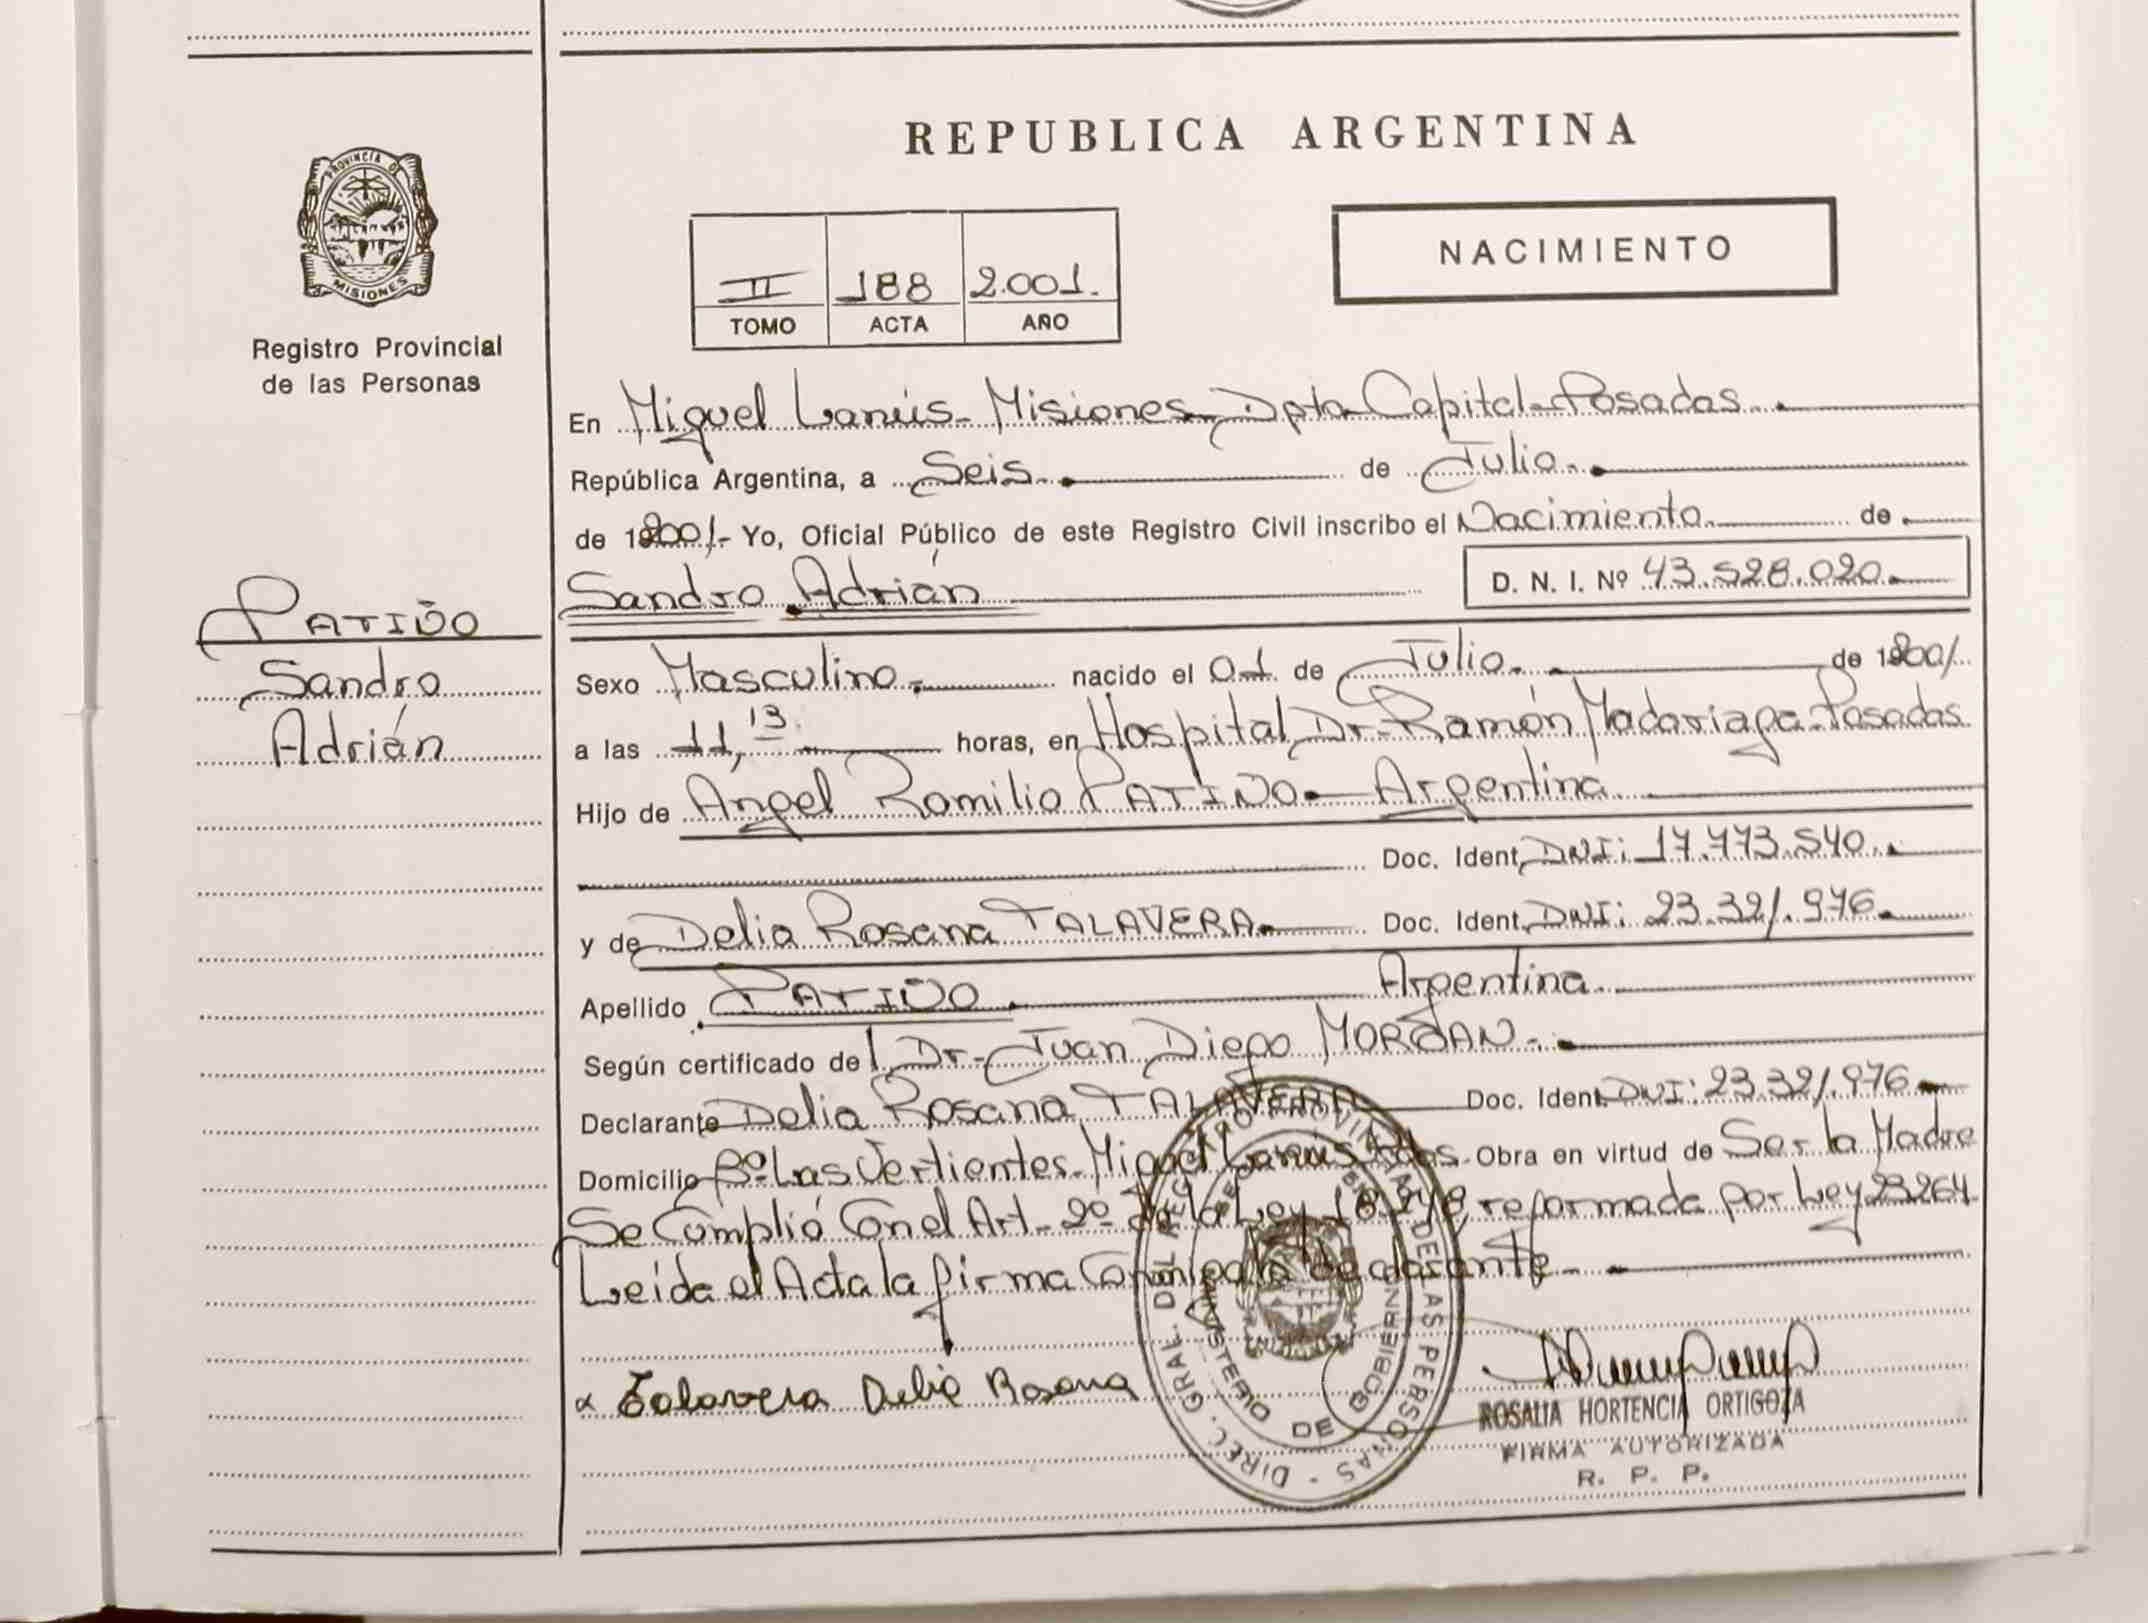 PROVINCIA DE
MISIONES
Registro Provincial
de las Personas
PATIÑO
Sandro
Adrián
REPUBLICA ARGENTINA
II 188 2.001.
TOMO ACTA AÑO
NACIMIENTO
En Miguel Lanús - Misiones, Dpto Capital - Posadas.
República Argentina, a Seis. de Julio.
de 2001.- Yo, Oficial Público de este Registro Civil inscribo el Nacimiento de
Sandro Adrián D. N. I. Nº 43.528.020.
Sexo Masculino. nacido el 01. de Julio. de 2001.
a las 11,13. horas, en Hospital Dr. Ramón Madariaga - Posadas.
Hijo de Angel Ramilio PATIÑO - Argentina
Doc. Ident. DNI: 17.473.540.
y de Delia Rosana TALAVERA. Doc. Ident. DNI: 23.321.976.
Apellido PATIÑO. Argentina.
Según certificado del Dr. Juan Diego
Declarante Delia Rosana TALAVERA Doc. Ident. DNI: 23.321.976
Domicilio Bº Las Vertientes. Miguel Lanús Obra en virtud de Ser la Madre
Se Cumplió Con el Art. 2º de la Ley 18.248, reformada por Ley 23264
Leída el Acta la firma Conmigo la declarante.
x Talavera Delia Rosana
DIREC. GRAL. DEL REGISTRO PROVINCIAL DE LAS PERSONAS
MINISTERIO DE GOBIERNO
ROSALIA HORTENCIA ORTIGOZA
FIRMA AUTORIZADA
R. P. P.